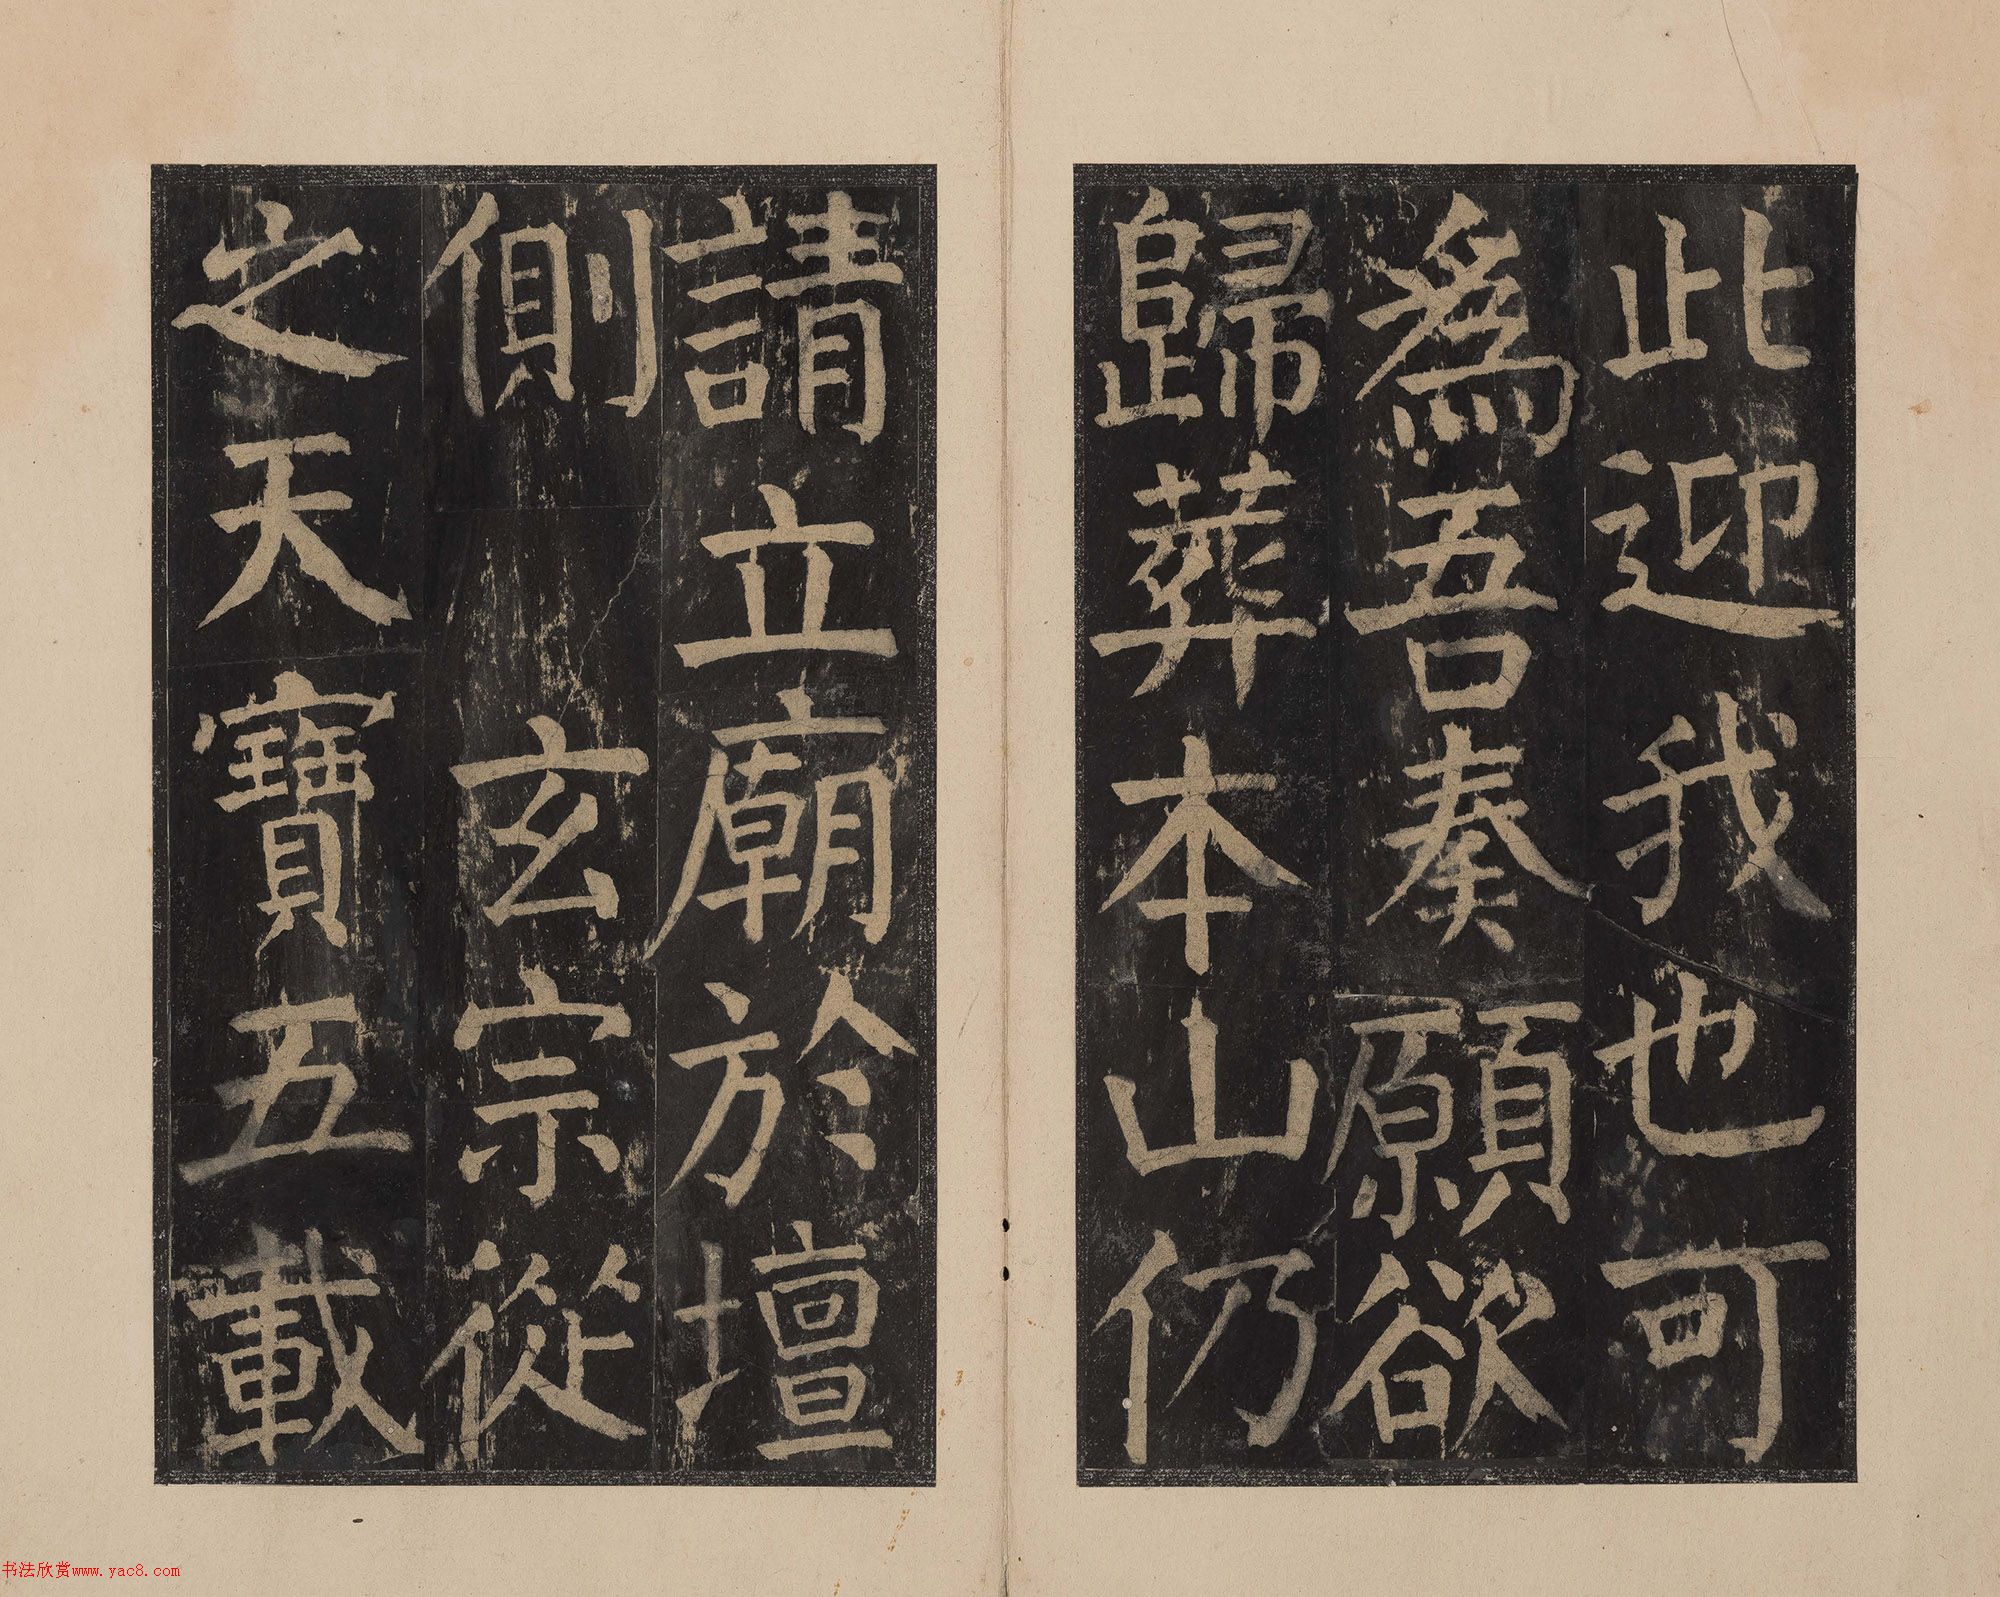 此迎我也可
為吾奏願欲
歸葬本山仍
請立廟於壇
側玄宗從
之天寶五載
书法欣赏www.yac8.com